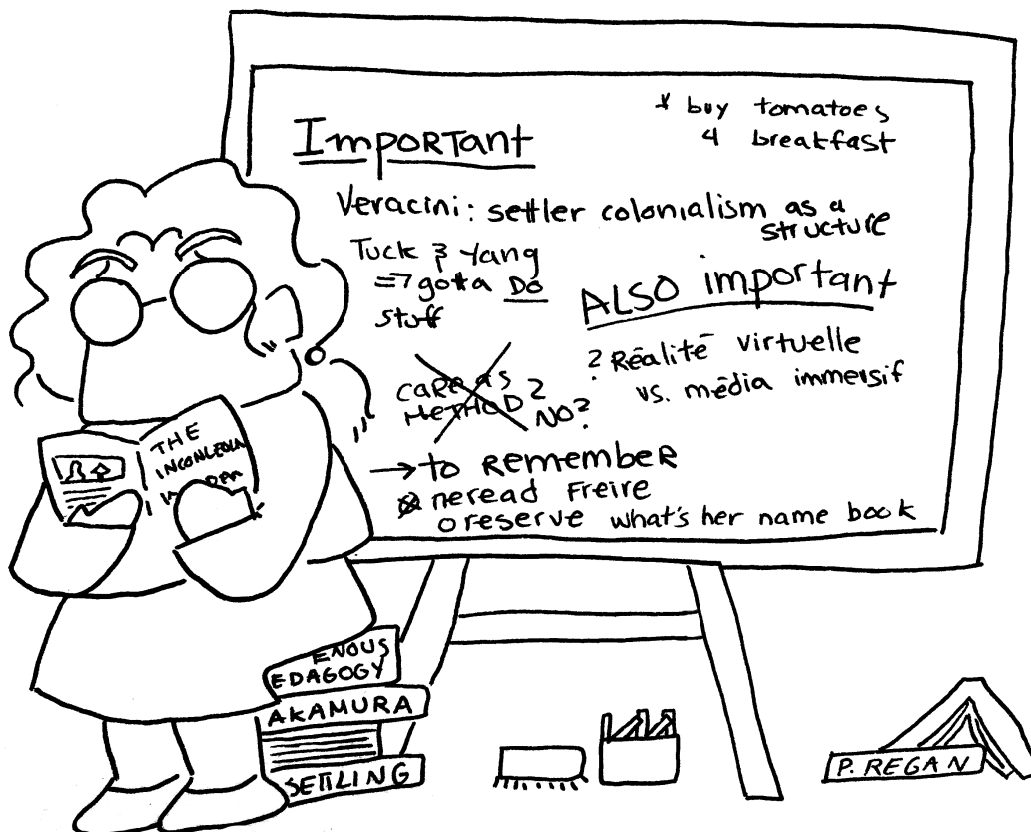 * buy tomatoes
4 breakfast
Important
Veracini: settler colonialism as a
structure
Tuck & Yang
=> gotta Do
stuff
ALSO important
? Réalité virtuelle
vs. média immersif
CARE AS
METHOD?
NO?
→ to Remember
reread Freire
o reserve what's her name book
THE
ENOUS
EDAGOGY
AKAMURA
SETTLING
P. REGAN